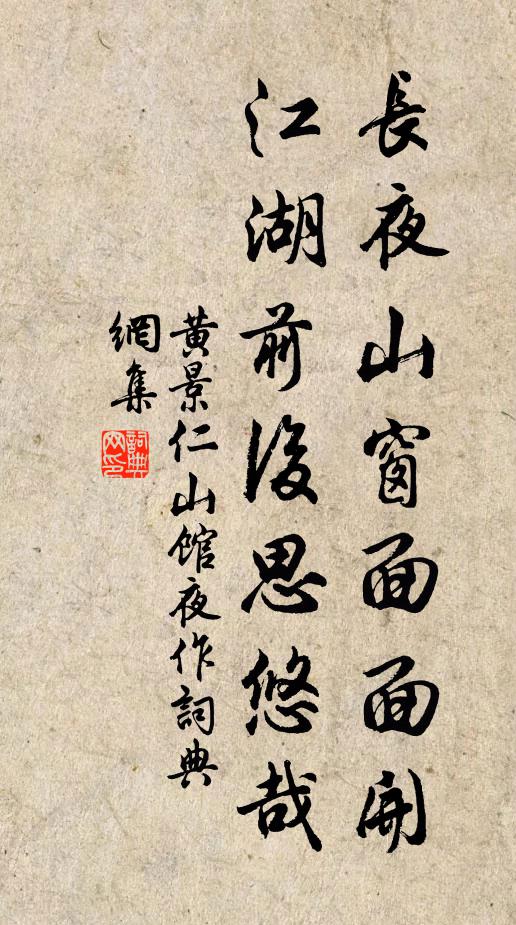 長夜山窗面面開
江湖前後思悠哉
黄景仁山館夜作詞典
網集
詞典网印